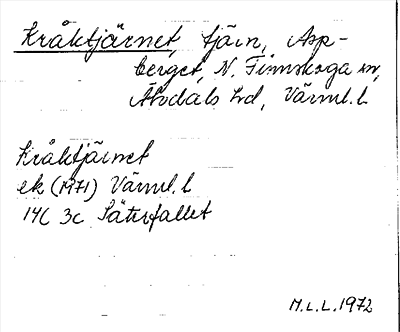 Kråktjärnet, tjärn, Asp-
berget, N. Finnskoga sn,
Älvdals hd, Värml. l.
Kråktjärnet
ek (1971) Värml. l.
14C 3c Säterfallet
M.L.L. 1972